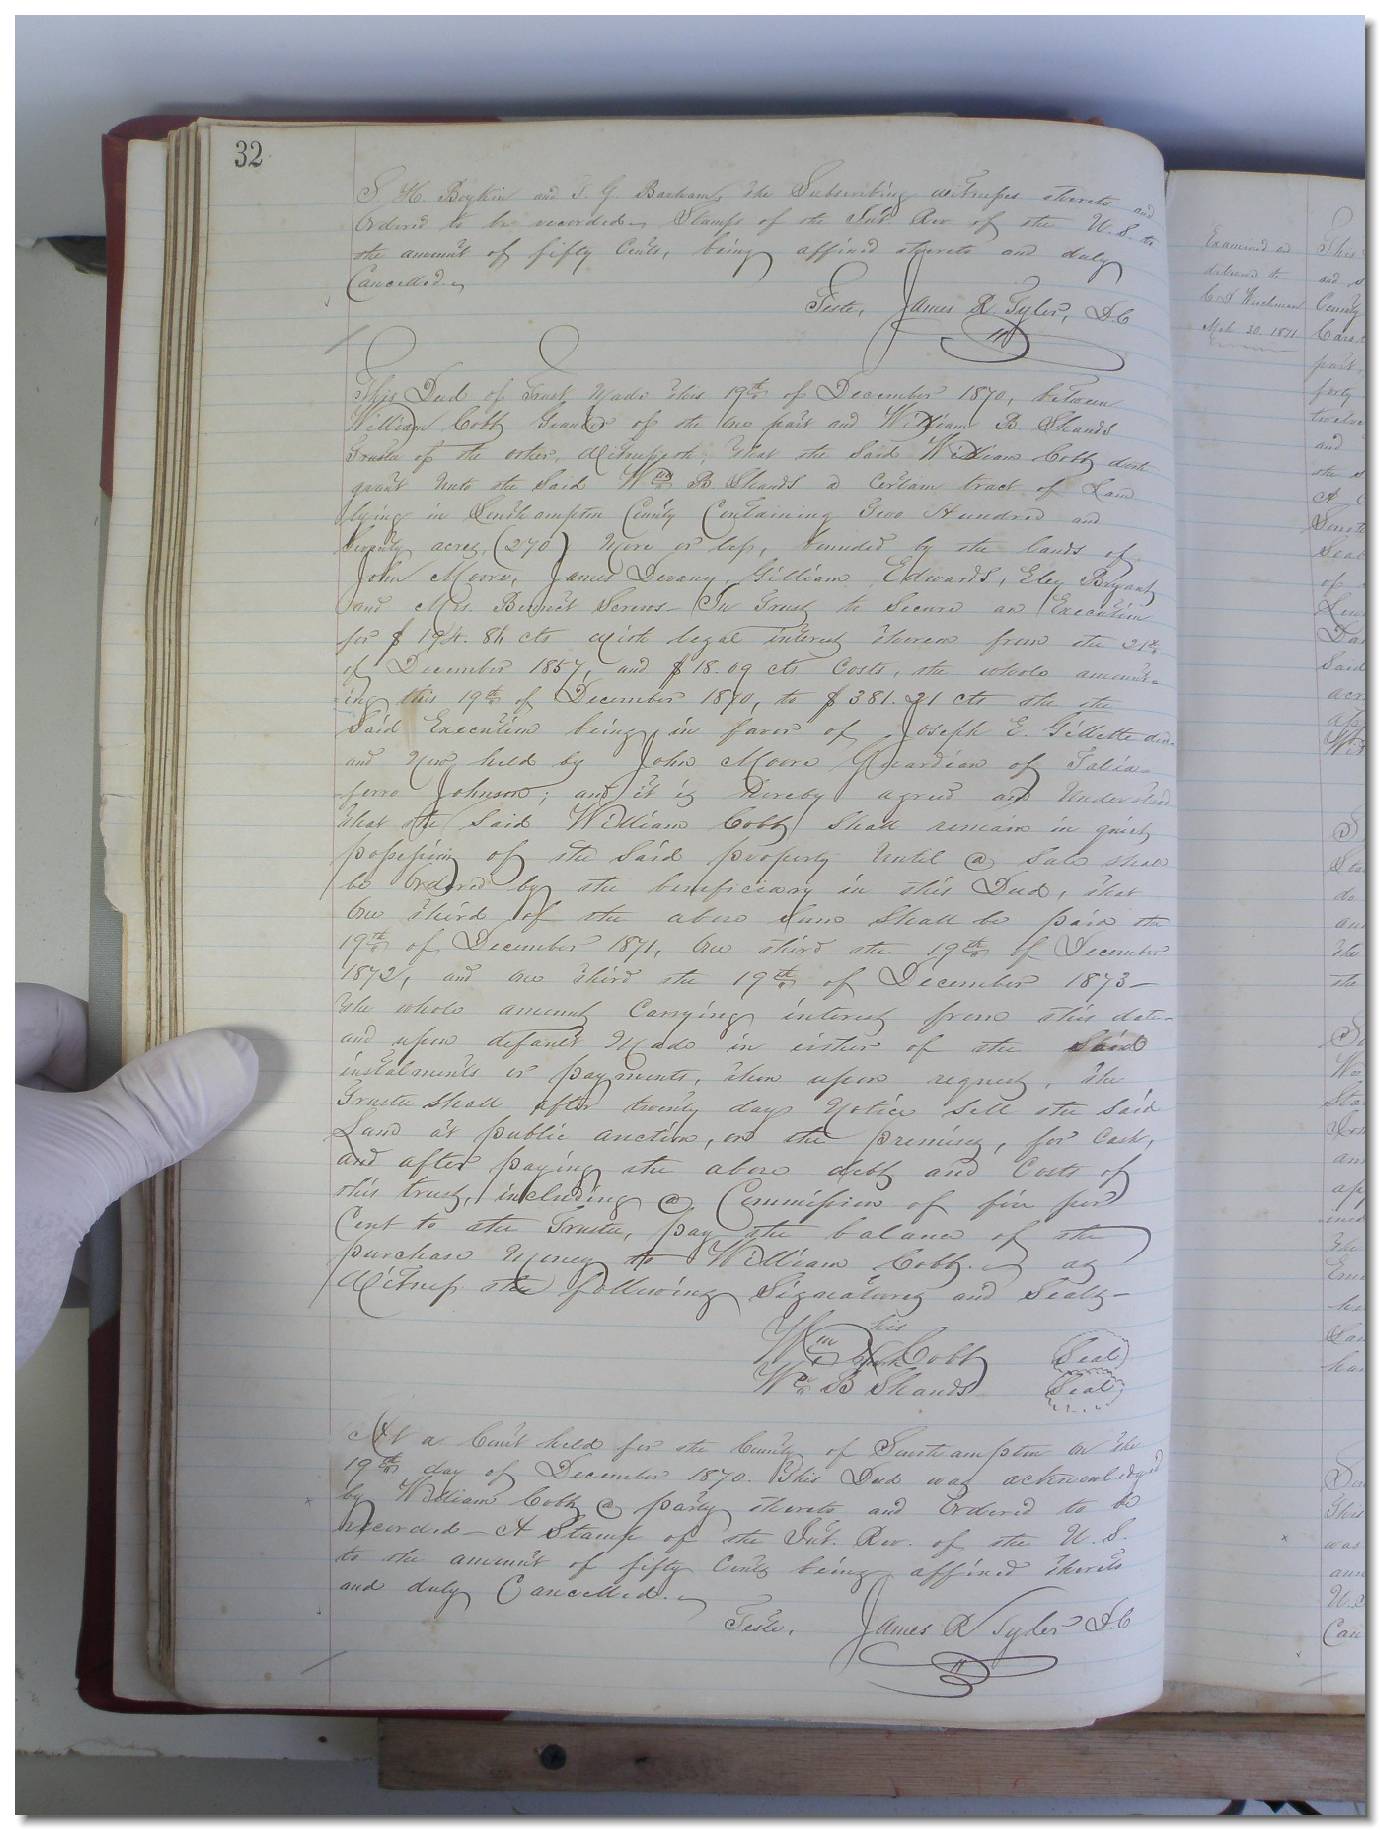 32
S. H. Boykin and T. G. Barham, the Subscribing witnesses thereto and
Ordered to be recorded. Stamps of the Int. Rev. of the U. S. to
the amount of fifty Cents, being affixed thereto and duly
Cancelled.
Teste, James R. Tyler, D.C
This Deed of Trust, Made this 19th of December 1870, between
William Cobb Grantor of the One part and William B. Shands
Trustee of the other, Witnesseth; that the Said William Cobb doth
grant Unto the Said Wm B Shands a Certain tract of Land
lying in Southampton County Containing Two Hundred and
Seventy acres, (270) More or less, bounded by the lands of
John Moore, James Devany, Gilliam Edwards, Eley Bryant
and Mrs. Bennet Screws - In Trust to Secure an Execution
for $ 194. 84 cts with legal interest thereon from the 21st
of December 1857, and $18.09 cts Costs, the whole amount-
-ing this 19th of December 1870, to $381.21 cts the the
Said Execution being in favor of Joseph E. Gillette decd
and Now held by John Moore Guardian of Talia-
-ferro Johnson; and it is hereby agreed and Understood
that the Said William Cobb Shall remain in quiet
possession of the Said property Until a Sale shall
be Ordered by the beneficiary in this Deed, that
One third of the above Sum Shall be paid the
19th of December 1871, One third the 19th of December
1872, and One third the 19th of December 1873 -
the whole amount Carrying interest from this date -
and upon default Made in either of the Said
instalments or payments, then upon request, the
Trustee Shall after twenty days Notice Sell the Said
Land at public auction, on the premises, for Cash,
and after paying the above debt and Costs of
this trust, including a Commission of five per
Cent to the Trustee, pay the balance of the
purchase Money to William Cobb. as
Witness the following Signatures and Seals -
his
Wm X Cobb Seal
mark
Wm B Shands Seal
At a Court held for the County of Southampton on the
19th day of December 1870. This Deed was acknowledged
by William Cobb a party thereto and Ordered to be
recorded - A Stamp of the Int. Rev. of the U. S.
to the amount of fifty Cents being affixed thereto
and duly Cancelled.
Teste, James R Tyler D.C
Examined and
delivered to
Mch 20. 1871
This
and
County
part,
forty
twelve
and
the